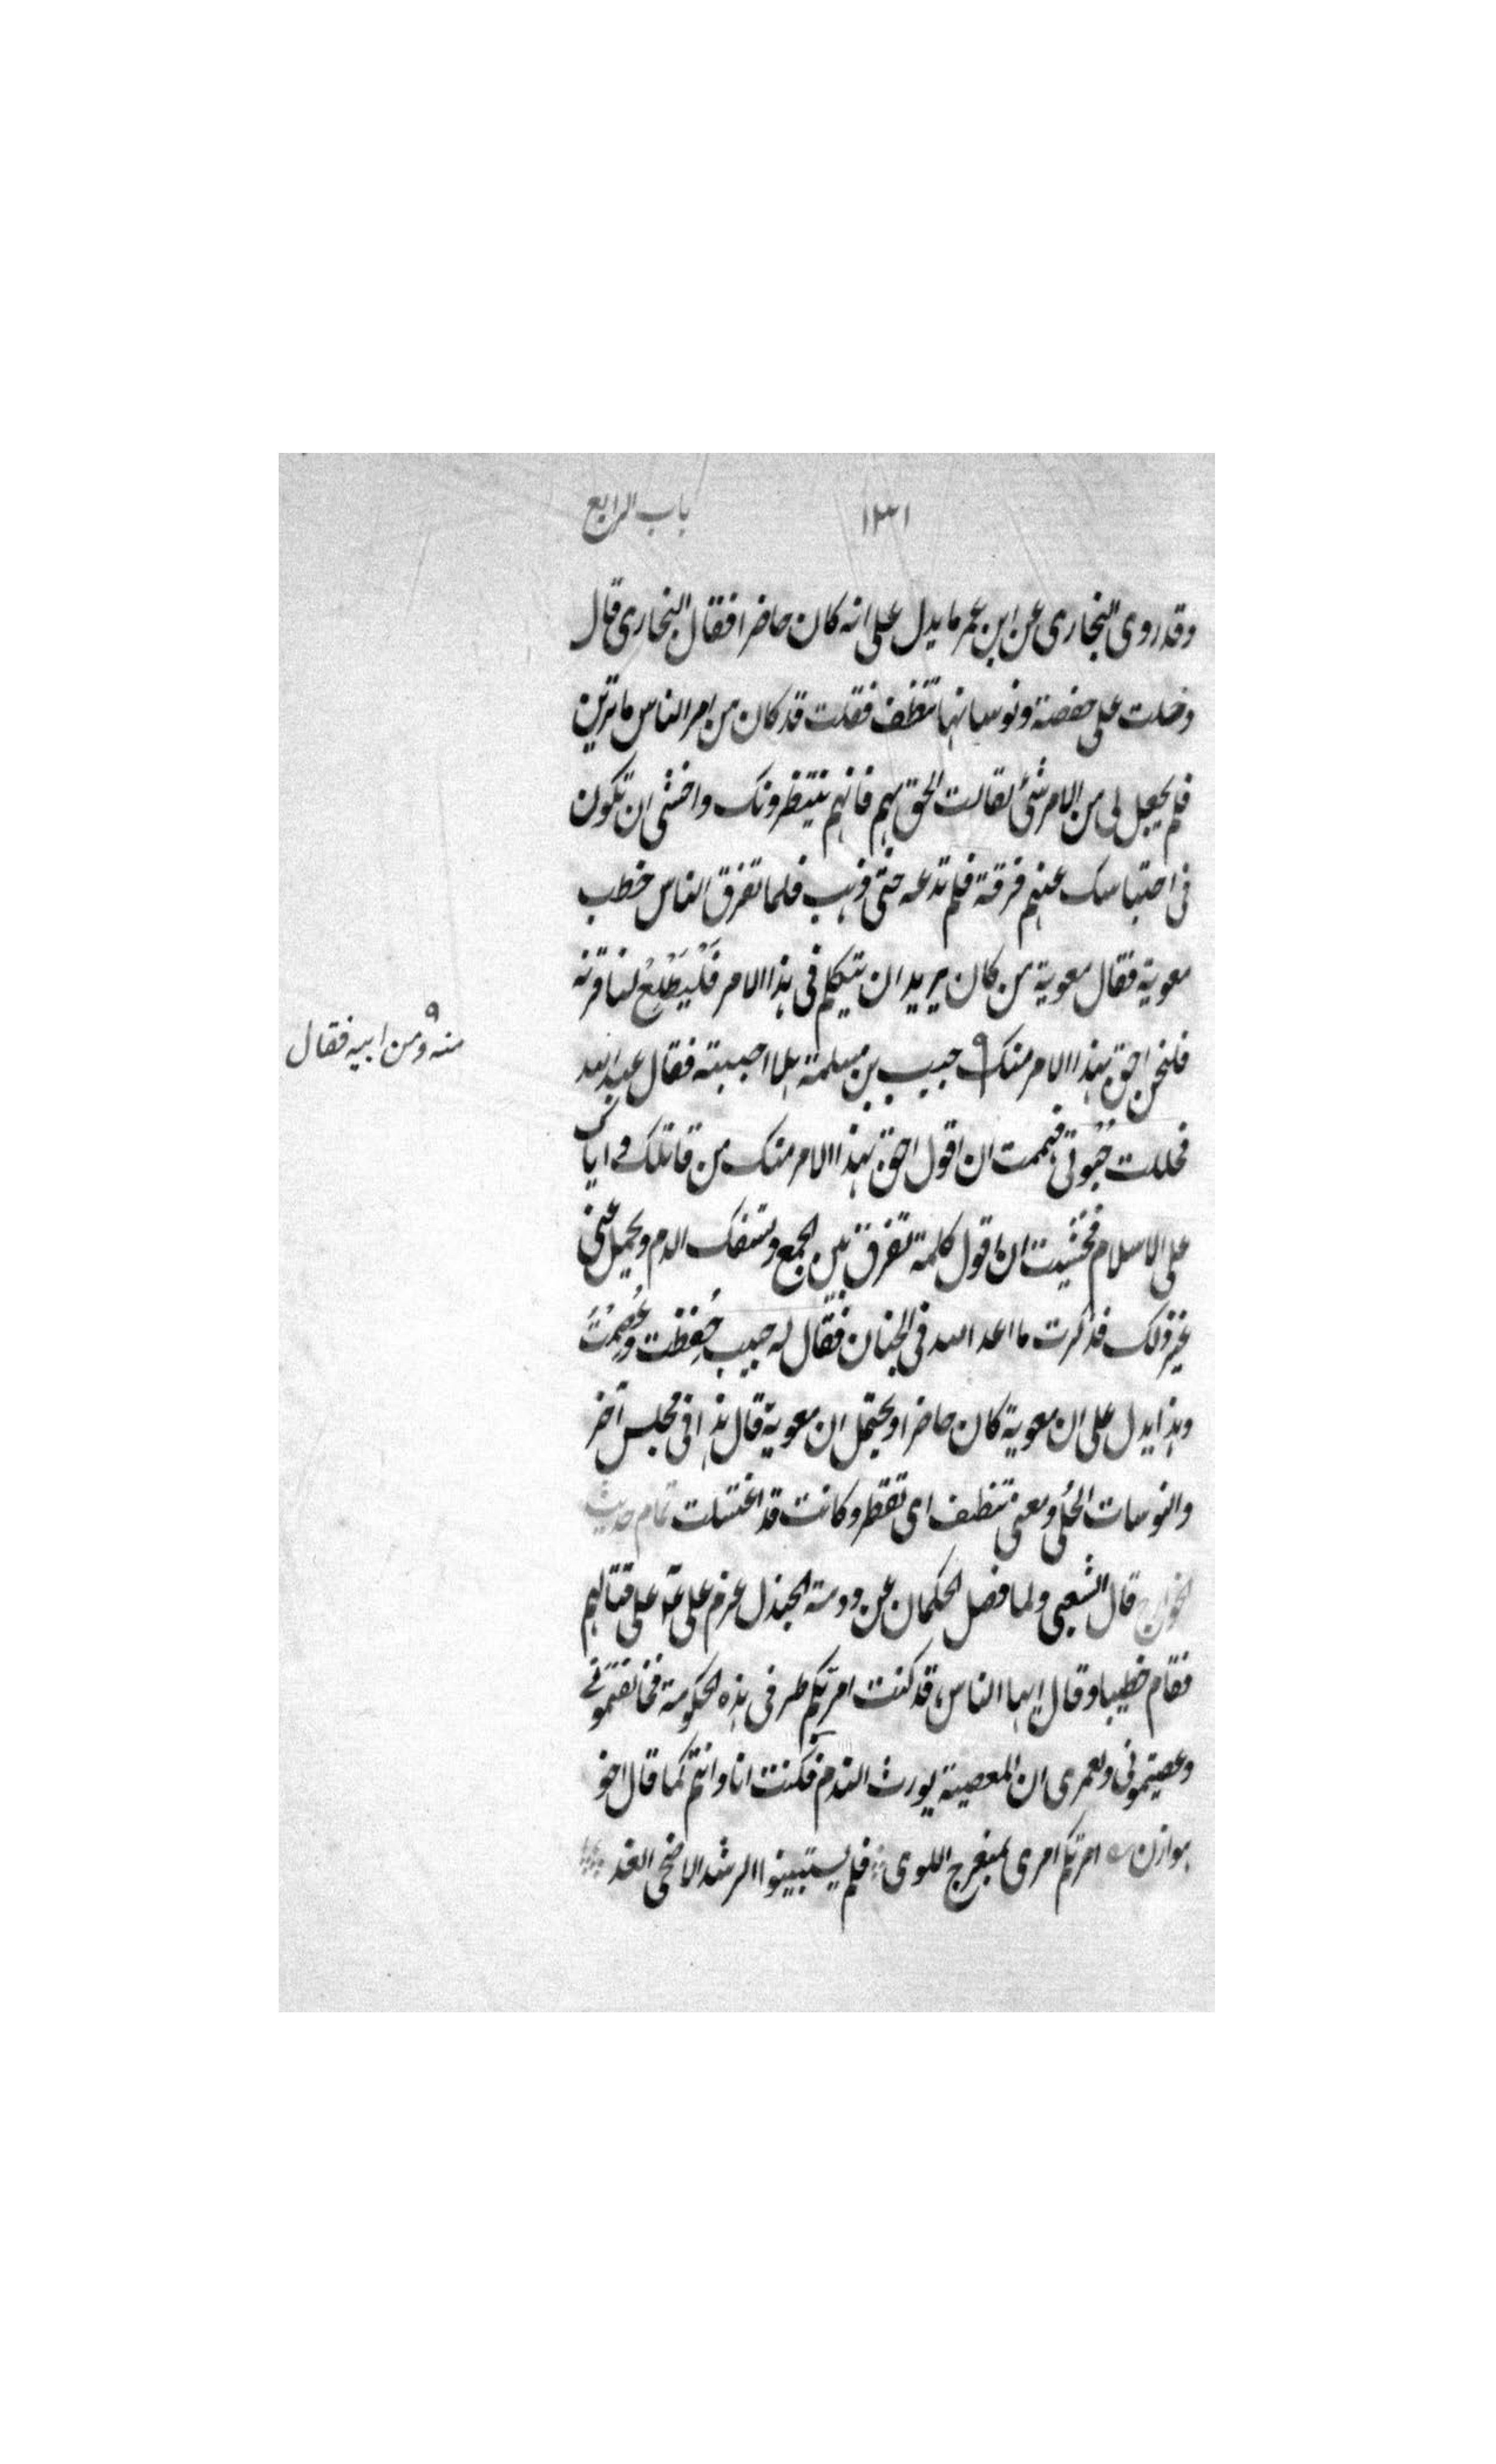 ١٣١ باب الرابع
وقد روى البخارى عن ابن عمر ما يدل على انه كان حاضرا فقال البخارى قال
دخلت على حفصة ونوساتها تنظف فقلت قد كان من امر الناس ما ترين
فلم يجعل لى من الامر شئ فقالت الحق بهم فانهم ينتظرونك واخشى ان تكون
فى احتباسك عنهم فرقة فلم تدعه حتى ذهب فلما تفرق الناس خطب
معوية فقال معوية من كان يريد ان يتكلم فى هذا الامر فَلْيَطْلِعْ لنا قرنه
فلنحن احق بهذا الامر منك ٩ حبيب بن مسلمة هلا اجبته فقال عبد الله
منه ومن ابيه فقال ٩
فحللت حُبْوتى فهممت ان اقول احق بهذا الامر منك من قاتلك واباك
على الاسلام فخشيت ان اقول كلمة تفرق بين الجمع وتسفك الدم ويحمل عنى
غير ذلك فذكرت ما اعد الله فى الجنان فقال له حبيب حُفِظت وعُصِمْتَ
وهذا يدل على ان معوية كان حاضرا ويحتمل ان معوية قال هذا فى مجلس آخر
والنوسات الحُلى ومعنى تنظف اى تقطر وكانت قد اغتسلت تمام حديث
الخوارج قال الشعبى ولما فصل الحكمان عن دومة الجندل عزم على عم على قتالهم
فقام خطيبا وقال ايها الناس قد كنت امرتكم طر فى هذه الحكومة فخالفتمونى
وعصيتمونى ولعمرى ان المعصية يورث الندم فكنت انا وانتم كما قال اخو
هوازن امرتكم امرى بمنعرج اللوى فلم يستبينوا الرشد الا ضحى الغد